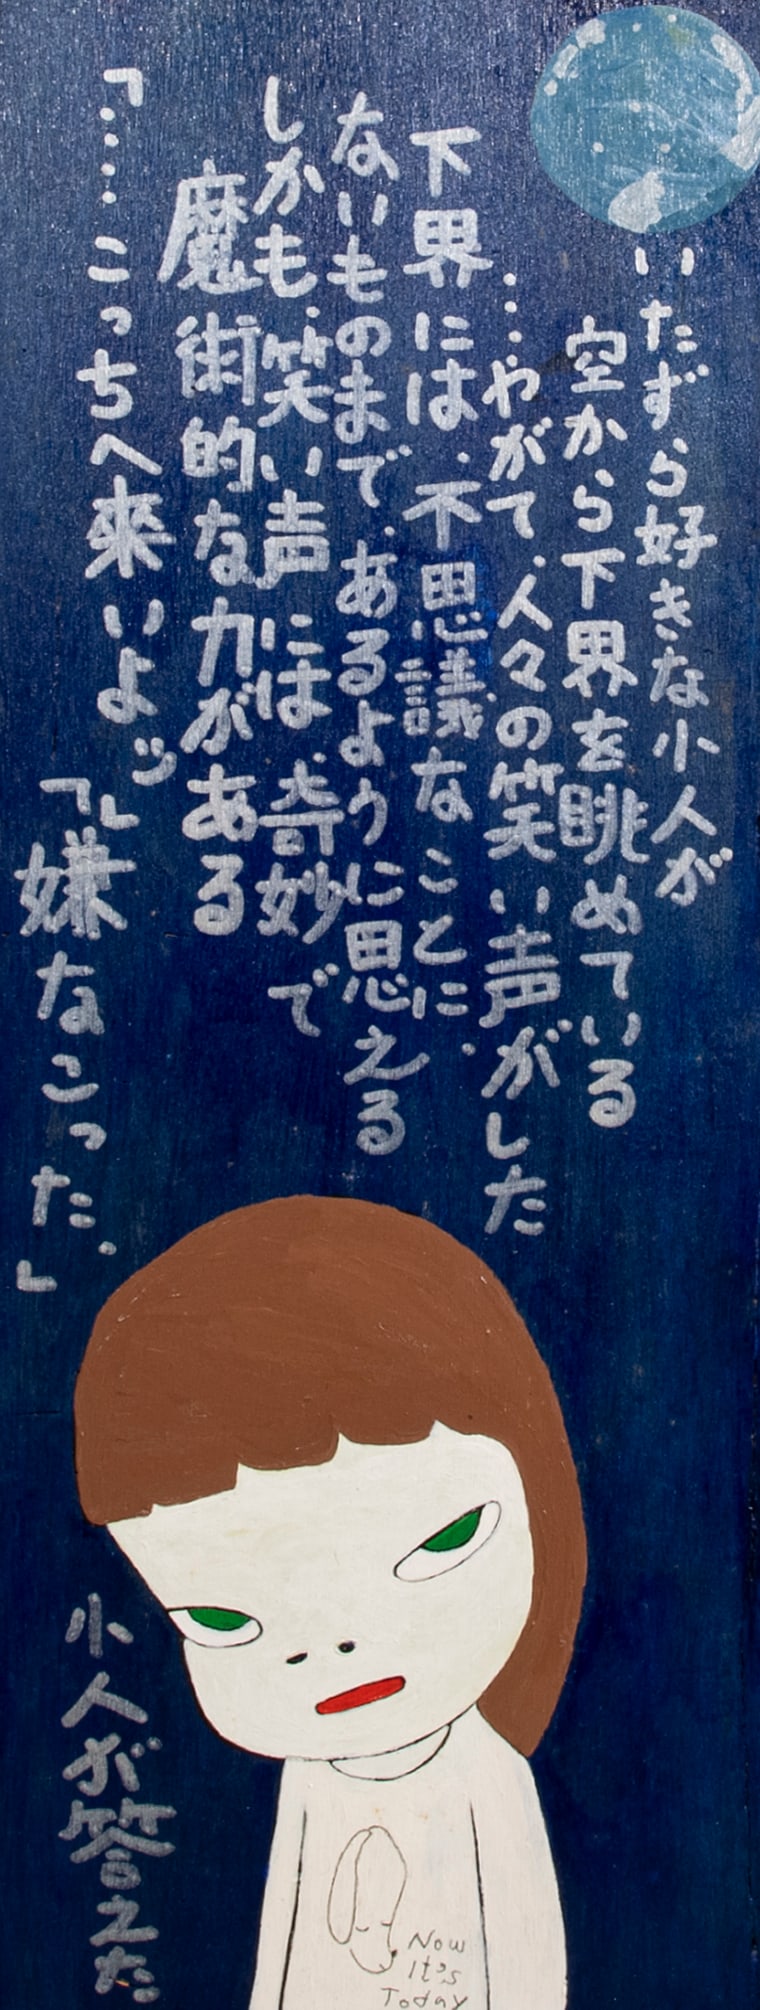 いたずら好きな小人が
空から下界を眺めている
……やがて、人々の笑い声がした
下界には、不思議なことに、
ないものまで、あるように思える
しかも、笑い声には奇妙で
魔術的な力がある
「……こっちへ来いよッ」
「嫌なこった。」
小人が答えた
Now
It's
Today